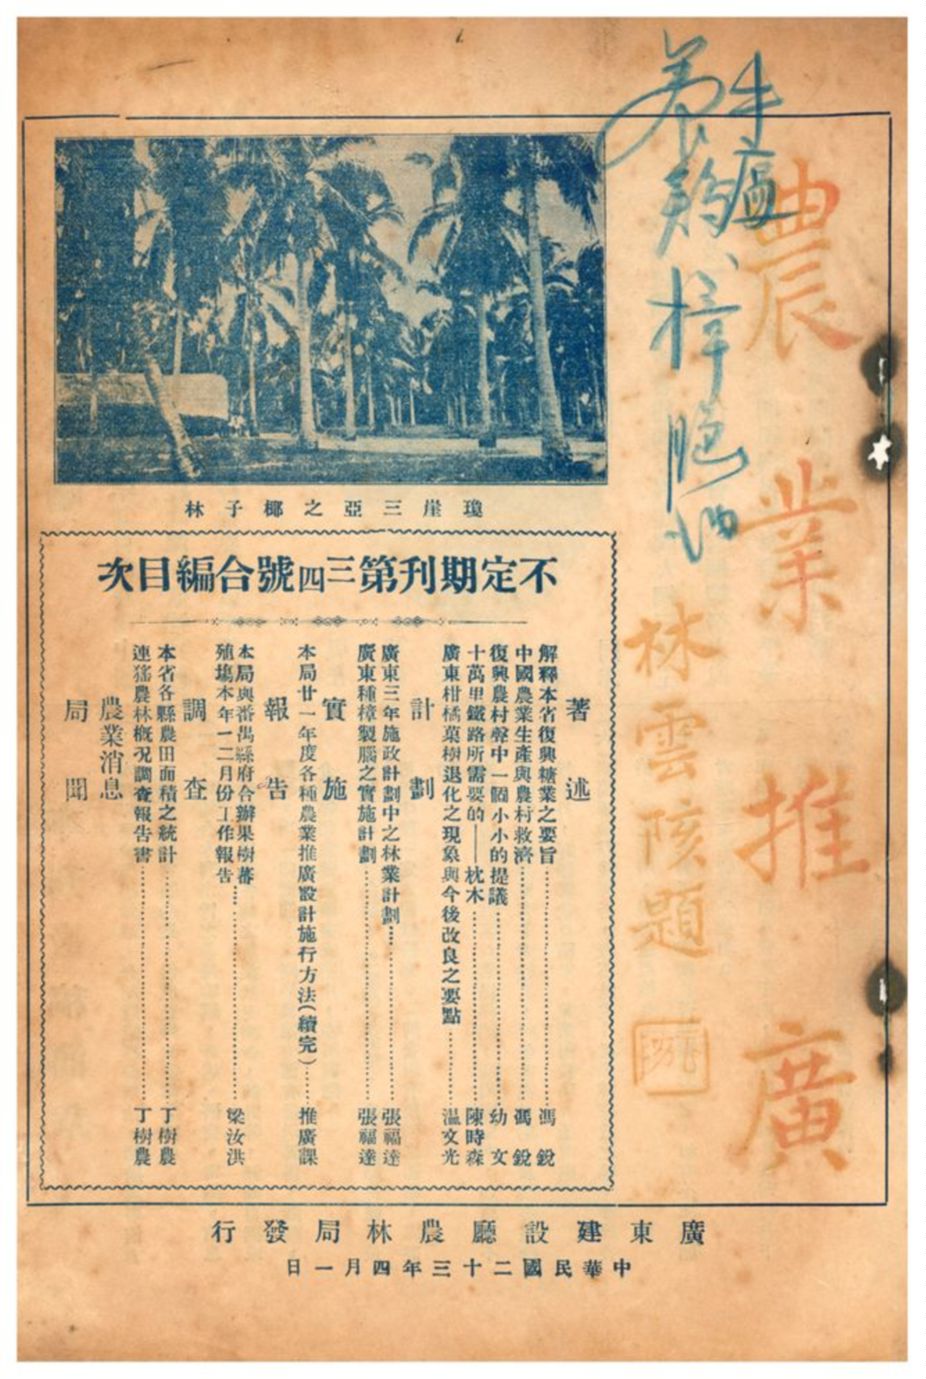 農業推廣
林雲陔題
牛瘟
養鷄
樟腦油
瓊崖三亞之椰子林
不定期刊第三四號合編目次
著述
解釋本省復興糖業之要旨……馮銳
中國農業生產與農村救濟……馮銳
復興農村聲中一個小小的提議……幼文
十萬里鐵路所需要的——枕木……陳時森
廣東柑橘菓樹退化之現象與今後改良之要點……溫文光
計劃
廣東三年施政計劃中之林業計劃……張福達
廣東種樟製腦之實施計劃……張福達
實施
本局廿一年度各種農業推廣設計施行方法(續完)……推廣課
報告
本局與番禺縣府合辦果樹蕃
殖場本年一二月份工作報告……梁汝洪
調查
本省各縣農田面積之統計……丁樹農
連猺農林概況調查報告書……丁樹農
農業消息
局聞
廣東建設廳農林局發行
中華民國二十三年四月一日